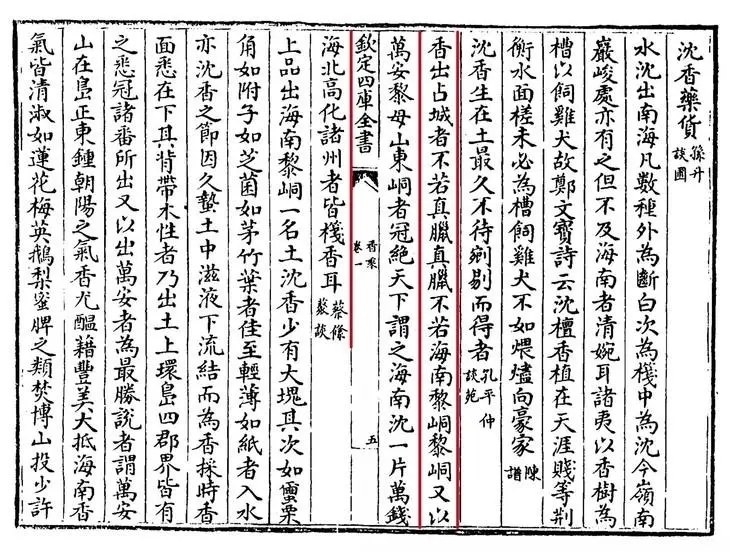 沈香藥貨孫升談圃
水沈出南海凡數種外為斷白次為棧中為沈今嶺南
巖峻處亦有之但不及海南者清婉耳諸夷以香樹為
槽以飼雞犬故鄭文寶詩云沈檀香植在天涯賤等荆
衡水面槎未必為槽飼雞犬不如煨燼向豪家陳譜
沈香生在土最久不待剜剔而得者孔平仲談苑
香出占城者不若真臘真臘不若海南黎峒黎峒又以
萬安黎母山東峒者冠絕天下謂之海南沈一片萬錢
欽定四庫全書
香乘
卷一
五
海北高化諸州者皆棧香耳蔡絛叢談
上品出海南黎峒一名土沈香少有大塊其次如蠒栗
角如附子如芝菌如茅竹葉者佳至輕薄如紙者入水
亦沈香之節因久蟄土中滋液下流結而為香採時香
面悉在下其背帶木性者乃出土上環島四郡界皆有
之悉冠諸番所出又以出萬安者為最勝說者謂萬安
山在島正東鍾朝陽之氣香尤醖藉豐美大抵海南香
氣皆清淑如蓮花梅英鵝梨蜜脾之類焚博山投少許